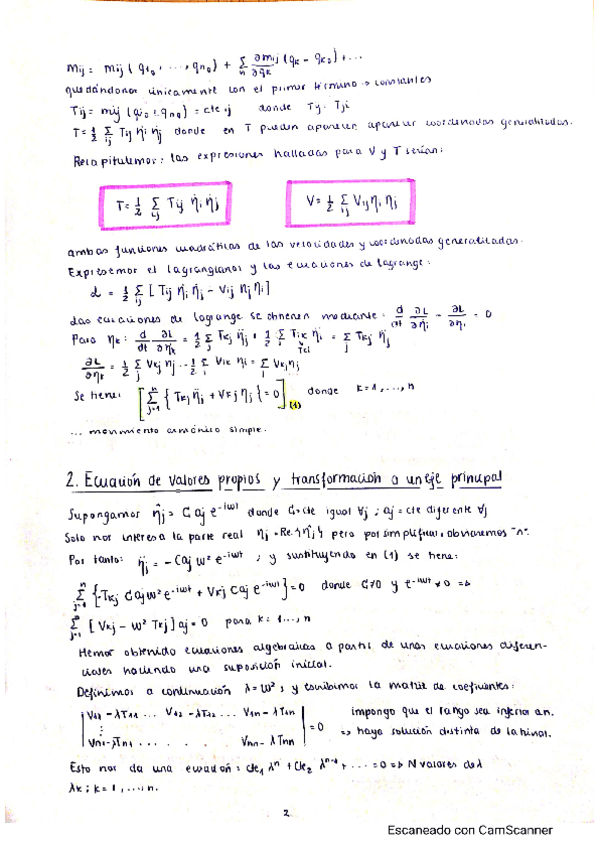 mij = mij (q10, ..., qn0) + Σn ∂mij/∂qk (qk - qk0) + ...
quedándonos únicamente con el primer término → constantes
Tij = mij (q10 ... qn0) = cte ij donde Tij = Tji
T = 1/2 Σij Tij η̇i η̇j donde en T pueden aparecer aparecer coordenadas generalizadas.
Recapitulemos: las expresiones halladas para V y T serían:
T = 1/2 Σij Tij η̇i η̇j
V = 1/2 Σij Vij ηi ηj
ambas funciones cuadráticas de las velocidades y coordenadas generalizadas.
Expresemos el lagrangiano y las ecuaciones de lagrange:
L = 1/2 Σij [Tij η̇i η̇j - Vij ηj ηi]
Las ecuaciones de lagrange se obtienen mediante: d/dt ∂L/∂η̇i - ∂L/∂ηi = 0
Para ηk: d/dt ∂L/∂η̇k = 1/2 Σj Tkj η̈j + 1/2 Σi Tik η̈i = Σj Tkj η̈j
Tki
∂L/∂ηk = 1/2 Σj Vkj ηj - 1/2 Σi Vik ηi = Σj Vkj ηj
Se tiene: [Σj=1^n {Tkj η̈j + Vkj ηj} = 0] (1) donde k = 1, ..., n
... movimiento armónico simple.
2. Ecuación de valores propios y transformacion a un eje principal
Supongamos η̂j = C aj e^-iωt donde C = cte igual ∀j ; aj = cte diferente ∀j
Solo nos interesa la parte real ηj = Re{η̂j} pero por simplificar, obviaremos "^".
Por tanto: η̈j = -C aj ω² e^-iωt ; y sustituyendo en (1) se tiene:
Σj=1^n {-Tkj C aj ω² e^-iωt + Vkj C aj e^-iωt} = 0 donde C≠0 y e^-iωt ≠ 0 ⇒
Σj=1^n [Vkj - ω² Tkj] aj = 0 para k = 1 ..., n
Hemos obtenido ecuaciones algebraicas a partir de unas ecuaciones diferen-
ciales haciendo una suposición inicial.
Definimos a continuación λ = ω² ; y escribimos la matriz de coeficientes:
| V11 - λT11 ... V12 - λT12 ... V1n - λT1n | impongo que el rango sea inferior a n.
⋮ = 0 ⇒ haya solución distinta de la trivial.
| Vn1 - λTn1 . . . . . Vnn - λTnn |
Esto nos da una ecuación: cte1 λ^n + cte2 λ^n-1 + ... = 0 ⇒ N valores de λ
λk ; k = 1, ..., n.
2
Escaneado con CamScanner